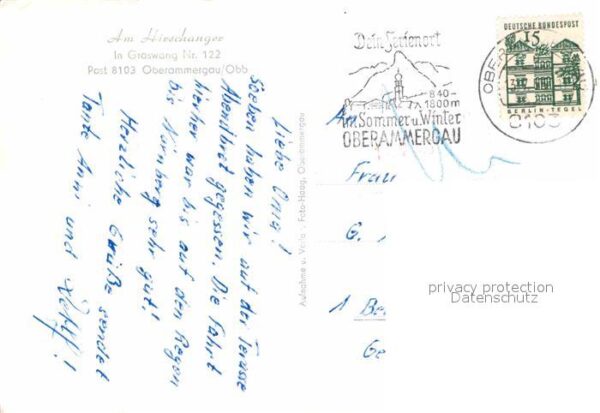 Am Hirschanger
In Graswang Nr. 122
Post 8103 Oberammergau/Obb
Liebe Oma!
Soeben haben wir auf der Terasse
Abendbrot gegessen. Die Fahrt
hierher war bis auf den Regen
bis Nürnberg sehr gut!
Herzliche Grüße sendet
Tante Anni und
Aufnahme u. Verlag: Foto-Haag, Oberammergau
Dein Ferienort
840-
1800m
Im Sommer u. Winter
OBERAMMERGAU
DEUTSCHE BUNDESPOST
15
BERLIN-TEGEL
8103
Frau
G.
1 Be
Ge
privacy protection
Datenschutz